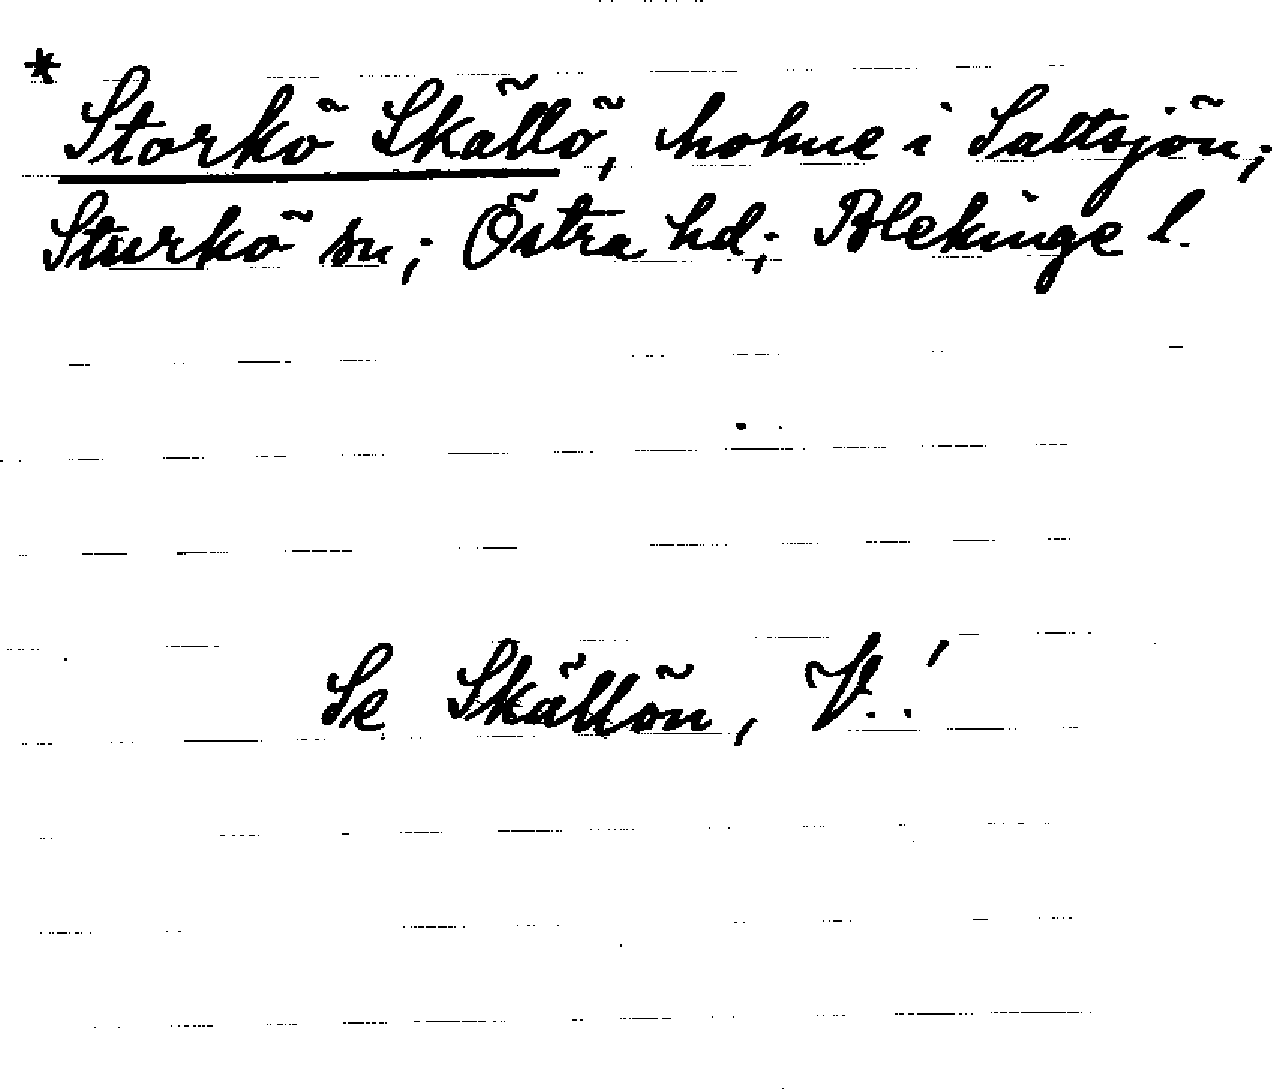 * Storkö Skällö, holme i Saltsjön;
Sturkö sn; Östra hd; Blekinge l.
Se Skällön, V.!